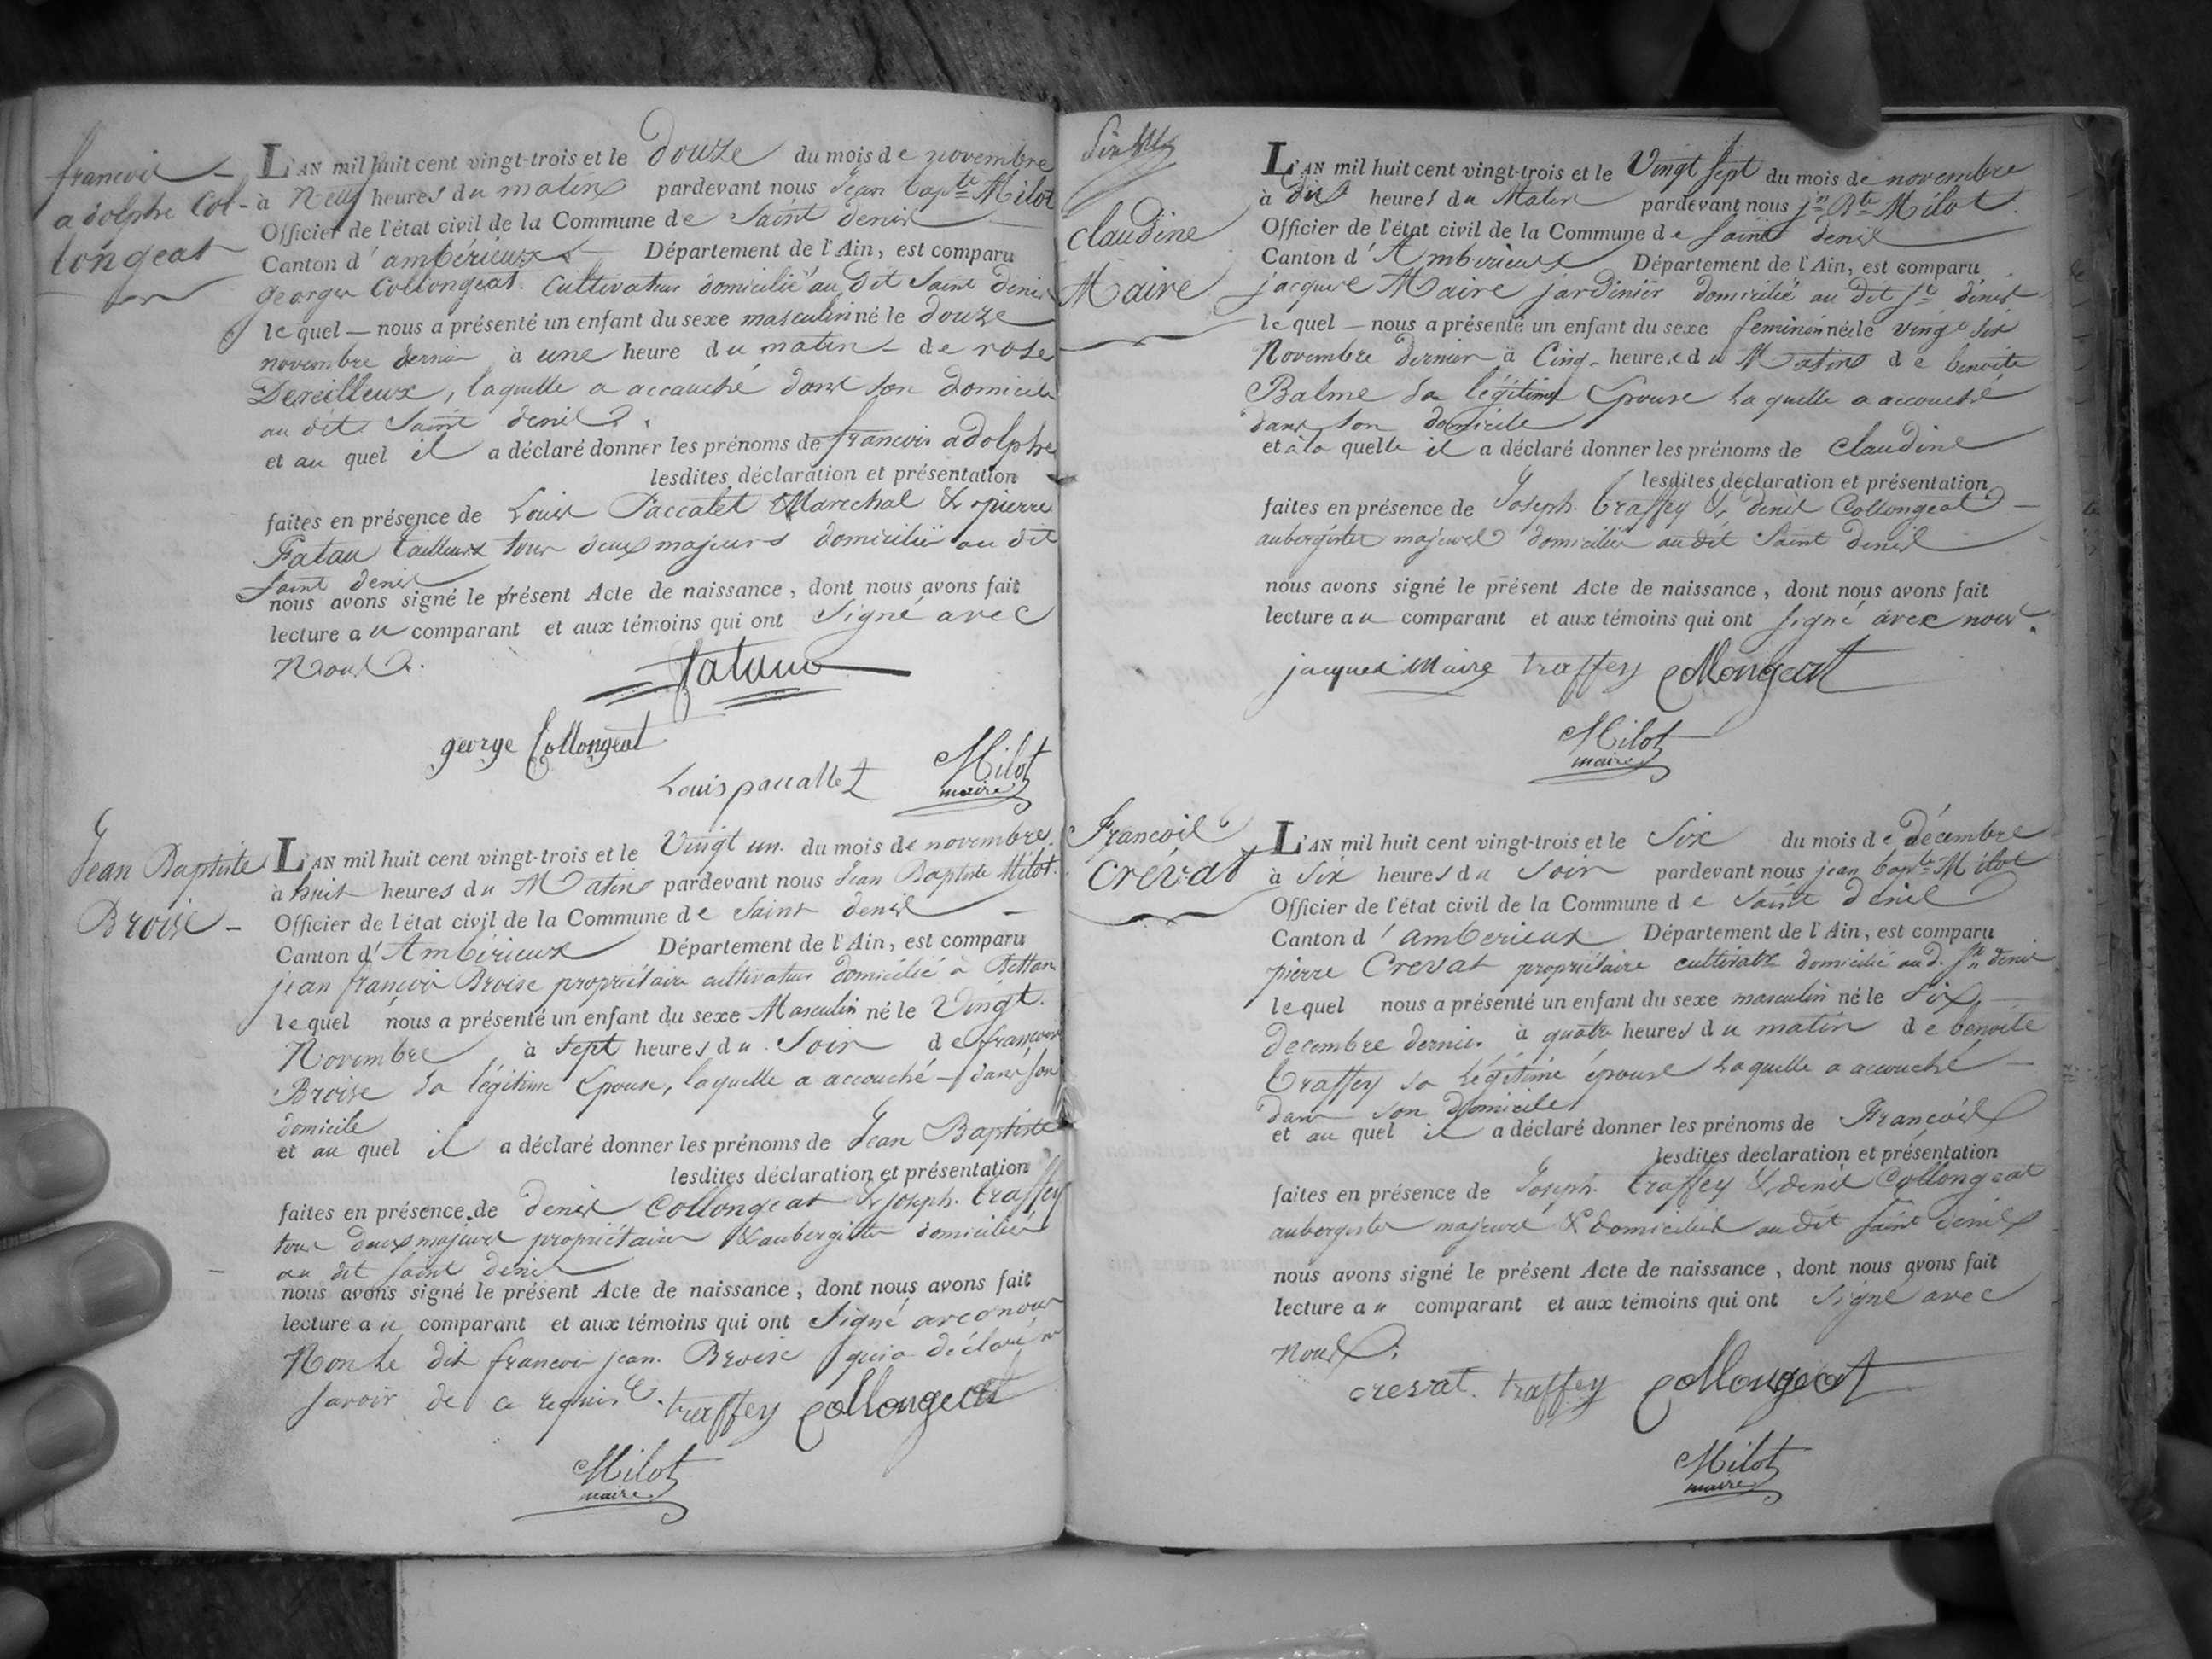 françois
adolphe Col-
longeat
L'AN mil huit cent vingt-trois et le douze du mois de novembre
à neuf heures du matin pardevant nous Jean bapte Milot
Officier de l'état civil de la Commune de Saint denis
Canton d'ambérieux Département de l'Ain, est comparu
georges Collongeat cultivateur domicilié au dit Saint denis
lequel nous a présenté un enfant du sexe masculin né le douze
novembre dernier à une heure du matin de rose
Dereilleux, laquelle a accouché dans son domicile
au dit Saint denis
et au quel il a déclaré donner les prénoms de françois adolphe
lesdites déclaration et présentation
faites en présence de Louis Paccalet Marechal & pierre
Fatau tailleurs tous deux majeurs domicilié au dit
Saint denis
nous avons signé le présent Acte de naissance, dont nous avons fait
lecture au comparant et aux témoins qui ont Signé avec
Nous.
fatau
george Collongeat
Louis paccallet
Milot
maire
Jean Baptiste
Broise
L'AN mil huit cent vingt-trois et le Vingt un du mois de novembre
à huit heures du Matin pardevant nous Jean Baptiste Milot
Officier de l'état civil de la Commune de Saint denis
Canton d'Ambérieux Département de l'Ain, est comparu
jean françois Broise propriétaire cultivateur domicilié à Bettan
lequel nous a présenté un enfant du sexe Masculin né le Vingt
Novembre à Sept heures du Soir de françoise
Broise sa légitime Epouse, laquelle a accouché dans son
domicile
et au quel il a déclaré donner les prénoms de Jean Baptiste
lesdites déclaration et présentation
faites en présence de denis Collongeat & joseph traffey
tous deux majeurs propriétaires & aubergistes domiciliés
au dit Saint denis
nous avons signé le présent Acte de naissance, dont nous avons fait
lecture au comparant et aux témoins qui ont Signé avec nous
Non le dit françois jean Broise qui a déclaré ne
savoir de ce requis. traffey Collongeat
Milot
maire
claudine
Maire
L'AN mil huit cent vingt-trois et le Vingt Sept du mois de novembre
à dix heures du Matin pardevant nous jn Bte Milot
Officier de l'état civil de la Commune de Saint denis
Canton d'Ambérieux Département de l'Ain, est comparu
jacques Maire jardinier domicilié au dit St denis
lequel nous a présenté un enfant du sexe feminin née le vingt six
Novembre dernier à Cinq heures du Matin de benoite
Balme sa légitime Epouse laquelle a accouché
dans son domicile
et à la quelle il a déclaré donner les prénoms de Claudine
lesdites déclaration et présentation
faites en présence de Joseph traffey & denis Collongeat
aubergistes majeurs domiciliés au dit Saint denis
nous avons signé le présent Acte de naissance, dont nous avons fait
lecture au comparant et aux témoins qui ont signé avec nous.
jacques Maire traffey Collongeat
Milot
maire
François
Crévat
L'AN mil huit cent vingt-trois et le Six du mois de décembre
à Six heures du Soir pardevant nous jean bapte Milot
Officier de l'état civil de la Commune de Saint denis
Canton d'ambérieux Département de l'Ain, est comparu
pierre Crevat propriétaire cultivatr domicilié aud. St denis
lequel nous a présenté un enfant du sexe masculin né le Six
decembre dernier à quatre heures du matin de benoite
traffey sa légitime épouse laquelle a accouché
dans son domicile
et au quel il a déclaré donner les prénoms de François
lesdites déclaration et présentation
faites en présence de Joseph traffey & denis Collongeat
aubergistes majeurs & domiciliés au dit Saint denis
nous avons signé le présent Acte de naissance, dont nous avons fait
lecture au comparant et aux témoins qui ont Signé avec
nous.
crevat. traffey Collongeat
Milot
maire